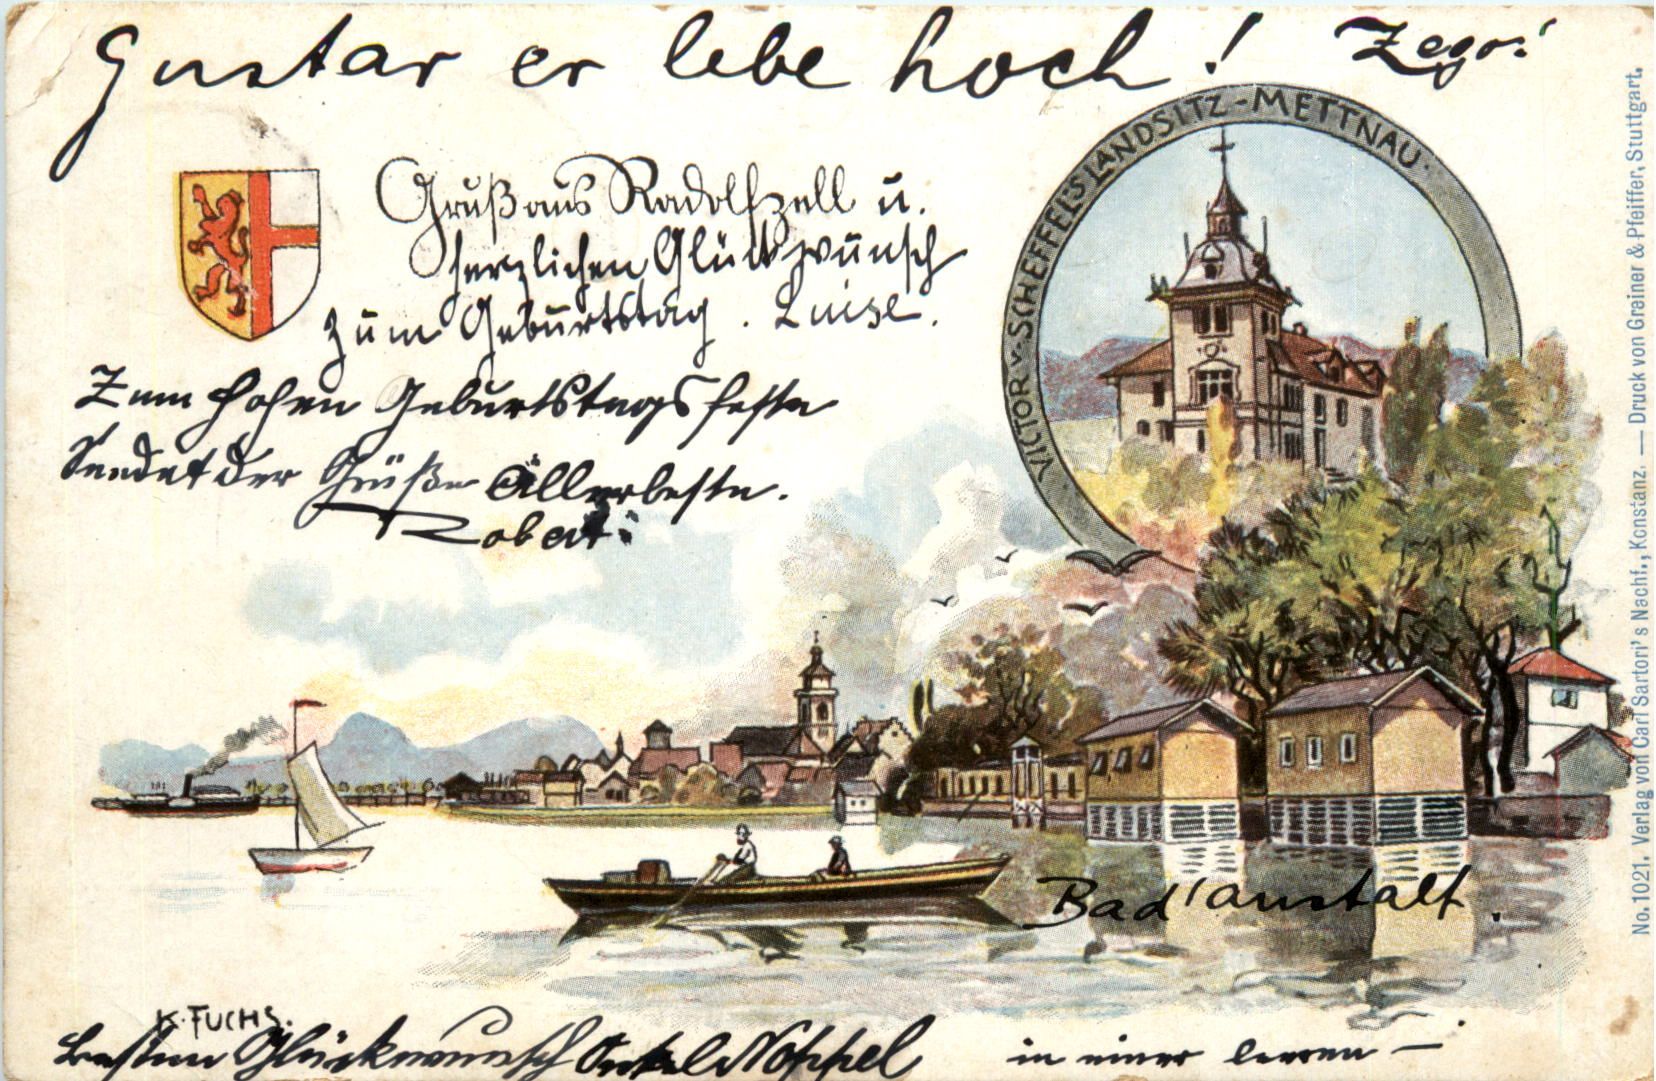 Gustav er lebe hoch!
VICTOR v. SCHEFFEL'S LANDSITZ-METTNAU.
Gruß aus Radolfzell u.
herzlichen Glückwunsch
zum Geburtstag. Luise.
Zum hohen Geburtstagsfeste
Sendet der Grüße Allerbeste.
Robert.
Bad'anstalt.
K. FUCHS.
besten Glückwunsch Onkel Noppel
in einer
No. 1021. Verlag von Carl Sartori's Nachf., Konstanz. — Druck von Greiner & Pfeiffer, Stuttgart.